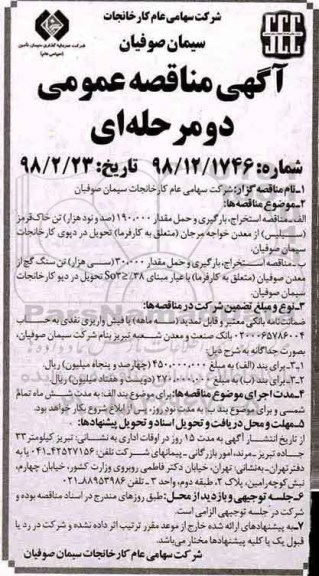 شرکت سهامی عام کارخانجات
سیمان صوفیان
شرکت سرمایه گذاری سیمان تأمین
(سهامی عام)
آگهی مناقصه عمومی
دو مرحله‌ای
شماره: ۹۸/۱۲/۱۷۴۶ تاریخ: ۹۸/۲/۲۳
۱-نام مناقصه گزار: شرکت سهامی عام کارخانجات سیمان صوفیان
۲-موضوع مناقصه‌ها:
الف-مناقصه استخراج، بارگیری و حمل مقدار ۱۹۰،۰۰۰ (صد و نود هزار) تن خاک‌قرمز
(سیلیس) از معدن خواجه مرجان (متعلق به کارفرما) تحویل در دپوی کارخانجات
سیمان صوفیان.
ب-مناقصه استخراج، بارگیری و حمل مقدار ۳۰،۰۰۰ (سی هزار) تن سنگ گچ از
معدن صوفیان (متعلق به کارفرما) با عیار مبنای ۳۸٪ ≤So3 تحویل در دپو کارخانجات
سیمان صوفیان.
۳-نوع و مبلغ تضمین شرکت در مناقصه‌ها:
ضمانت‌نامه بانکی معتبر و قابل تمدید (سه ماهه) یا فیش واریزی نقدی به حساب
۰۲۰۰۰۰۶۵۷۸۶۰۰۴ بانک صنعت و معدن شعبه تبریز بنام شرکت سیمان صوفیان،
بصورت جداگانه به شرح ذیل:
۳-۱- برای بند (الف) به مبلغ ۴۵۰،۰۰۰،۰۰۰ (چهارصد و پنجاه میلیون) ریال
۳-۲- برای بند (ب) به مبلغ ۲۷۰،۰۰۰،۰۰۰ (دویست و هفتاد میلیون) ریال
۴-مدت اجرای موضوع مناقصه‌ها: برای موضوع بند الف: به مدت شش ماه تمام
شمسی و برای موضوع بند ب به مدت نود روز، پس از ابلاغ شروع بکار خواهد بود.
۵-مهلت و محل دریافت و تحویل اسناد و تحویل پیشنهادها:
از تاریخ انتشار آگهی به مدت ۱۵ روز در اوقات اداری به نشانی: تبریز کیلومتر ۳۳
جاده تبریز_مرند، امور بازرگانی _پیمانهای شرکت تلفن: ۴۲۵۷۱۵۶-۰۴۱ یا به
دفتر تهران_ به‌نشانی: تهران، خیابان دکتر فاطمی روبروی وزارت کشور، خیابان چهارم،
نبش کوچه رامین، پلاک ۲، طبقه دوم، واحد ۳_ تلفن ۸۸۹۵۳۹۸۶-۰۲۱
۶-جلسه توجیهی و بازدید از محل: طبق روزهای مندرج در اسناد مناقصه بوده و
شرکت در جلسه توجیهی الزامی است.
۷-به پیشنهادهای ارائه شده خارج از موعد مقرر ترتیب اثر داده نشده و شرکت در رد یا
قبول یک یا کلیه پیشنهادها مختار می‌باشد.
شرکت سهامی عام کارخانجات سیمان صوفیان